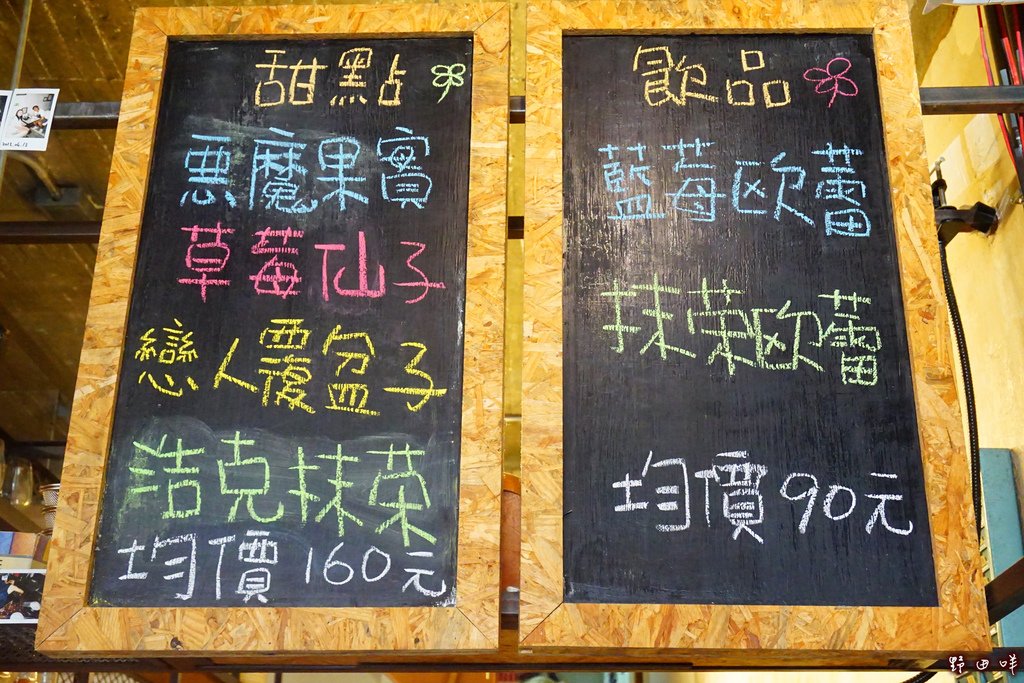 甜點
惡魔果實
草莓仙子
戀人覆盆子
浩克抹茶
均價160元
飲品
藍莓歐蕾
抹茶歐蕾
均價90元
野田咩